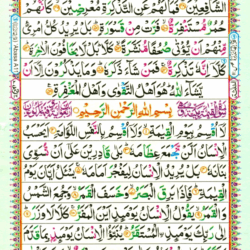 الشّٰفِعِيْنَ ۞ فَمَا لَهُمْ عَنِ التَّذْكِرَةِ مُعْرِضِيْنَ ۞ كَاَنَّهُمْ
حُمُرٌ مُّسْتَنْفِرَةٌ ۞ فَرَّتْ مِنْ قَسْوَرَةٍ ۞ بَلْ يُرِيْدُ كُلُّ امْرِئٍ
مِّنْهُمْ اَنْ يُّؤْتٰى صُحُفًا مُّنَشَّرَةً ۞ كَلَّا ؕ بَلْ لَّا يَخَافُوْنَ الْاٰخِرَةَ ۞
كَلَّاۤ اِنَّهٗ تَذْكِرَةٌ ۞ فَمَنْ شَآءَ ذَكَرَهٗ ۞ وَمَا يَذْكُرُوْنَ اِلَّاۤ اَنْ
يَّشَآءَ اللّٰهُ ؕ هُوَ اَهْلُ التَّقْوٰى وَاَهْلُ الْمَغْفِرَةِ ۞
بِسْمِ اللّٰهِ الرَّحْمٰنِ الرَّحِيْمِ
لَاۤ اُقْسِمُ بِيَوْمِ الْقِيٰمَةِ ۞ وَلَاۤ اُقْسِمُ بِالنَّفْسِ اللَّوَّامَةِ ۞ اَيَحْسَبُ
الْاِنْسَانُ اَلَّنْ نَّجْمَعَ عِظَامَهٗ ۞ بَلٰى قٰدِرِيْنَ عَلٰۤى اَنْ نُّسَوِّىَ
بَنَانَهٗ ۞ بَلْ يُرِيْدُ الْاِنْسَانُ لِيَفْجُرَ اَمَامَهٗ ۞ يَسْئَلُ اَيَّانَ يَوْمُ
الْقِيٰمَةِ ۞ فَاِذَا بَرِقَ الْبَصَرُ ۞ وَخَسَفَ الْقَمَرُ ۞ وَجُمِعَ الشَّمْسُ
وَالْقَمَرُ ۞ يَقُوْلُ الْاِنْسَانُ يَوْمَئِذٍ اَيْنَ الْمَفَرُّ ۞ كَلَّا لَا وَزَرَ ۞
اِلٰى رَبِّكَ يَوْمَئِذِ ۨالْمُسْتَقَرُّ ۞ يُنَبَّؤُا الْاِنْسَانُ يَوْمَئِذٍۭ بِمَا قَدَّمَ